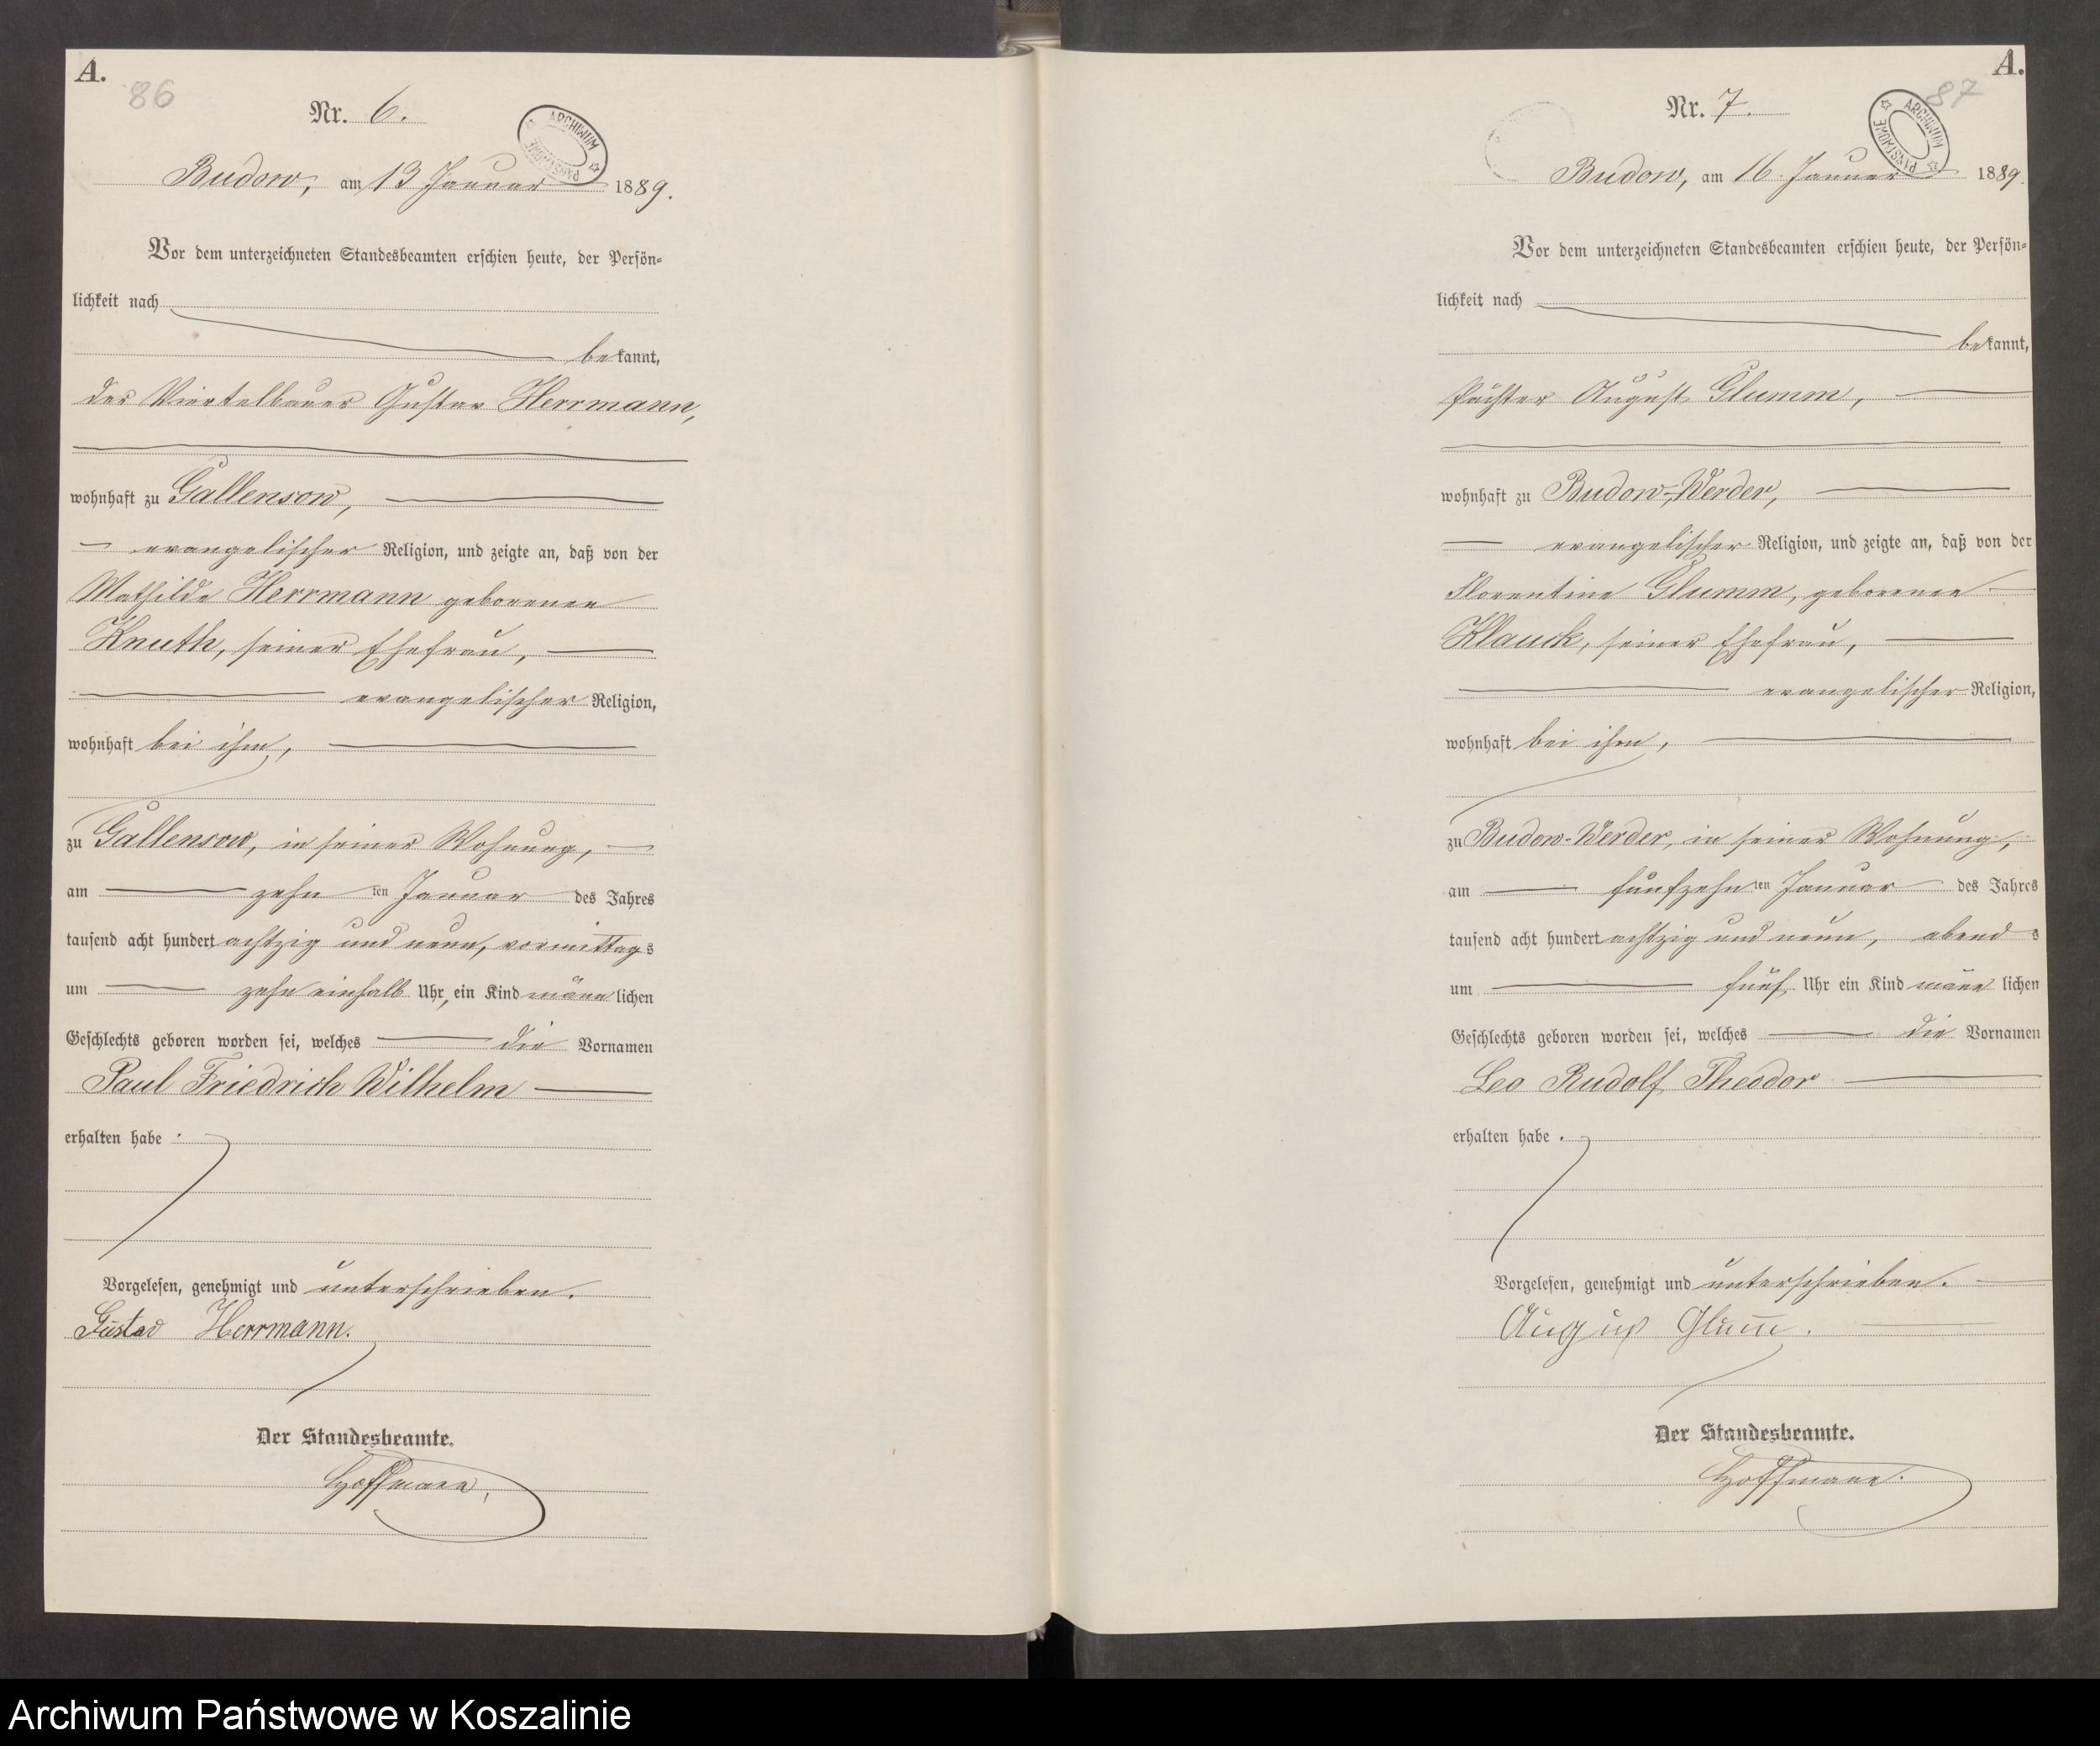 A.
86
Nr. 6.
ARCHIWUM PAŃSTWOWE
Budow, am 13 Januar 1889.
Vor dem unterzeichneten Standesbeamten erschien heute, der Persön-
lichkeit nach
bekannt,
der Viertelbauer Gustav Herrmann,
wohnhaft zu Gallensow,
evangelischer Religion, und zeigte an, daß von der
Mathilde Herrmann geborenen
Knuth, seiner Ehefrau,
evangelischer Religion,
wohnhaft bei ihm,
zu Gallensow, in seiner Wohnung,
am zehn ten Januar des Jahres
tausend acht hundert achtzig und neun, vormittags
um zehn einhalb Uhr, ein Kind männlichen
Geschlechts geboren worden sei, welches die Vornamen
Paul Friedrich Wilhelm
erhalten habe.
Vorgelesen, genehmigt und unterschrieben.
Gustav Herrmann.
Der Standesbeamte.
Hoffmann.
A.
87
Nr. 7.
ARCHIWUM PAŃSTWOWE
Budow, am 16. Januar 1889.
Vor dem unterzeichneten Standesbeamten erschien heute, der Persön-
lichkeit nach
bekannt,
Pächter August Glumm,
wohnhaft zu Budow-Werder,
evangelischer Religion, und zeigte an, daß von der
Florentine Glumm, geborenen
Klauck, seiner Ehefrau,
evangelischer Religion,
wohnhaft bei ihm,
zu Budow-Werder, in seiner Wohnung,
am fünfzehn ten Januar des Jahres
tausend acht hundert achtzig und neun, abends
um fünf Uhr ein Kind männlichen
Geschlechts geboren worden sei, welches die Vornamen
Leo Rudolf Theodor
erhalten habe.
Vorgelesen, genehmigt und unterschrieben.
August Glumm.
Der Standesbeamte.
Hoffmann.
Archiwum Państwowe w Koszalinie